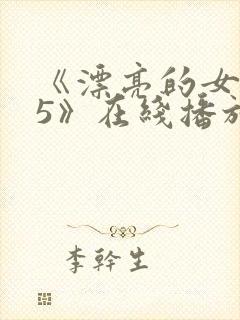 《漂亮的女
5》在綫播放
李幹生